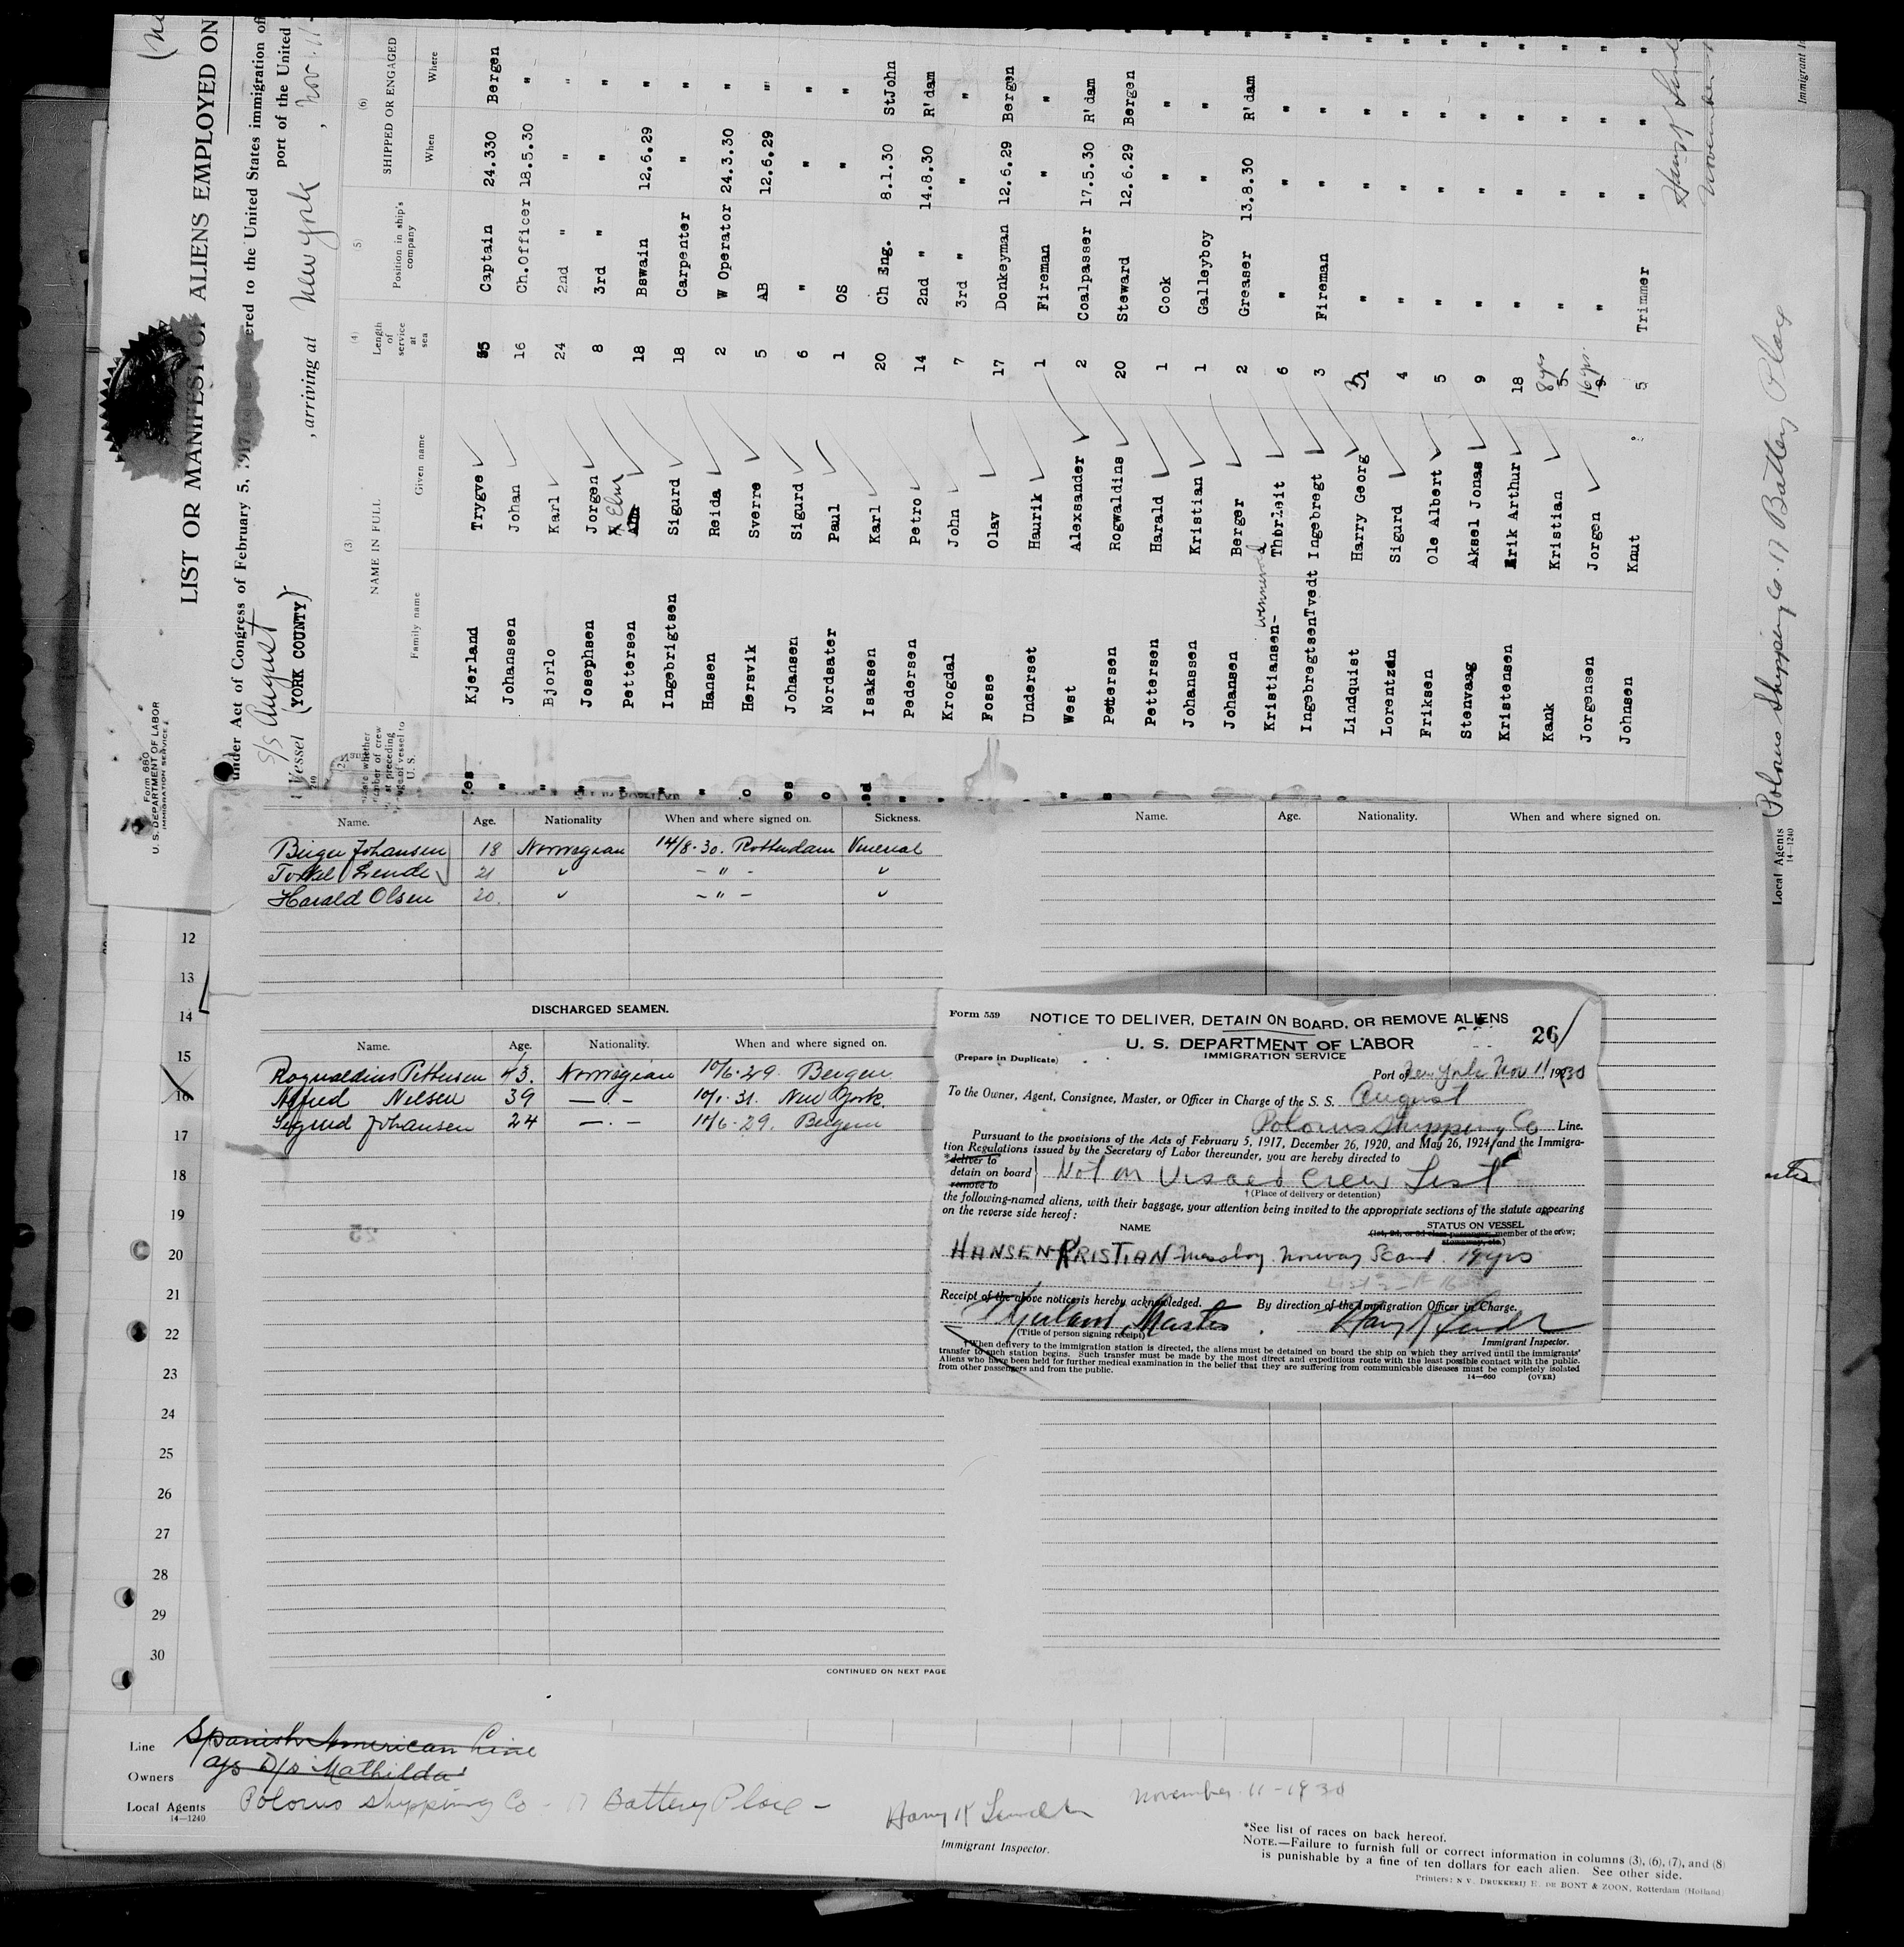 Form 680
U. S. DEPARTMENT OF LABOR
IMMIGRATION SERVICE
LIST OR MANIFEST OF ALIENS EMPLOYED ON
under Act of Congress of February 5, 1917
ered to the United States immigration
port of the United
S/S August
Vessel (YORK COUNTY)
, arriving at New York , Nov. 11
(3) NAME IN FULL
(4) Length of service at sea
(5) Position in ship's company
(6) SHIPPED OR ENGAGED
Family name Given name When Where
Kjerland Trygve Captain 24.330 Bergen
Johanssen Johan 16 Ch.Officer 18.5.30 "
Bjorlo Karl 24 2nd " " "
Josephsen Jorgen 8 3rd " " "
Pettersen 18 Bswain 12.6.29 "
Ingebrigtsen Sigurd 18 Carpenter " "
Hansen Reida 2 W Operator 24.3.30 "
Hersvik Sverre 5 AB 12.6.29 "
Johansen Sigurd 6 " " "
Nordsater Paul 1 OS " "
Isaksen Karl 20 Ch Eng. 8.1.30 StJohn
Pedersen Petro 14 2nd " 14.8.30 R'dam
Krogdal John 7 3rd " " "
Fosse Olav 17 Donkeyman 12.6.29 Bergen
Underset Haurik 1 Fireman " "
West Alexsander 2 Coalpasser 17.5.30 R'dam
Pettersen Rogwaldins 20 Steward 12.6.29 Bergen
Pettersen Harald 1 Cook " "
Johanssen Kristian 1 Galleyboy " "
Johansen Berger 2 Greaser 13.8.30 R'dam
Kristiansen- Thorleit 6 " " "
IngebregtsenTvedt Ingebregt 3 Fireman " "
Lindquist Harry Georg 3 " " "
Lorentzen Sigurd 4 " " "
Friksen Ole Albert 5 " " "
Stenvaag Aksel Jonas 9 " " "
Kristensen Erik Arthur 18 " " "
Kank Kristian 8 yrs " " "
Jorgensen Jorgen 16 yrs. " " "
Johnsen Knut 5 Trimmer " "
Local Agents Polorus Shipping Co. 17 Battery Place
14—1240
Name. Age. Nationality When and where signed on. Sickness.
Birger Johansen 18 Norwegian 14/8-30. Rotterdam Venereal
Torkel Lende 21 " – " –
Harald Olsen 20. " – " –
Name. Age. Nationality. When and where signed on.
DISCHARGED SEAMEN.
Name. Age. Nationality. When and where signed on.
Rognvaldius Pettersen 43. Norwegian 10/6-29 Bergen
Alfred Nilsen 39 – . – New York.
Sigurd Johansen 24 – . – Bergen
CONTINUED ON NEXT PAGE
12
13
14
15
16
17
18
19
20
21
22
23
24
25
26
27
28
29
30
Form 559
NOTICE TO DELIVER, DETAIN ON BOARD, OR REMOVE ALIENS
U. S. DEPARTMENT OF LABOR
26
IMMIGRATION SERVICE
(Prepare in Duplicate)
Port of New York Nov 11 1930
To the Owner, Agent, Consignee, Master, or Officer in Charge of the S. S. August
Polorus Shipping Co Line.
Pursuant to the provisions of the Acts of February 5, 1917, December 26, 1920, and May 26, 1924, and the Immigra-
tion Regulations issued by the Secretary of Labor thereunder, you are hereby directed to
*deliver to
detain on board Not on Visaed Crew List
remove to
† (Place of delivery or detention)
the following-named aliens, with their baggage, your attention being invited to the appropriate sections of the statute appearing
on the reverse side hereof:
NAME STATUS ON VESSEL
(1st, 2d, or 3d class passenger; member of the crew;
stowaway, etc.)
HANSEN KRISTIAN Messboy. Norway Scand. 19 yrs
Receipt of the above notice is hereby acknowledged. By direction of the Immigration Officer in Charge.
Kjerland, Master
(Title of person signing receipt)
Immigrant Inspector.
† When delivery to the immigration station is directed, the aliens must be detained on board the ship on which they arrived until the immigrants'
transfer to such station begins. Such transfer must be made by the most direct and expeditious route with the least possible contact with the public.
Aliens who have been held for further medical examination in the belief that they are suffering from communicable diseases must be completely isolated
from other passengers and from the public.
14—660 (OVER)
Line Spanish American Line
Owners A/S D/S Mathilda
Local Agents Polorus Shipping Co - 17 Battery Place -
14—1240
November 11-1930
Immigrant Inspector.
*See list of races on back hereof.
NOTE.—Failure to furnish full or correct information in columns (3), (6), (7), and (8)
is punishable by a fine of ten dollars for each alien. See other side.
Printers: N V. DRUKKERIJ H. DE BONT & ZOON, Rotterdam (Holland)